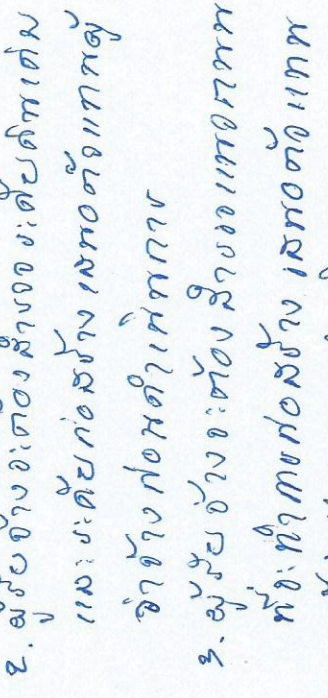 ๒. ผู้รับจ้างจะต้องสำรวจระดับดินเดิม
และระดับก่อสร้าง เสนอต่อแทนผู้
ว่าจ้างก่อนดำเนินการ
๓. ผู้รับจ้างจะต้องสำรวจแนวถนน
ที่จะทำการก่อสร้าง เสนอต่อแทน